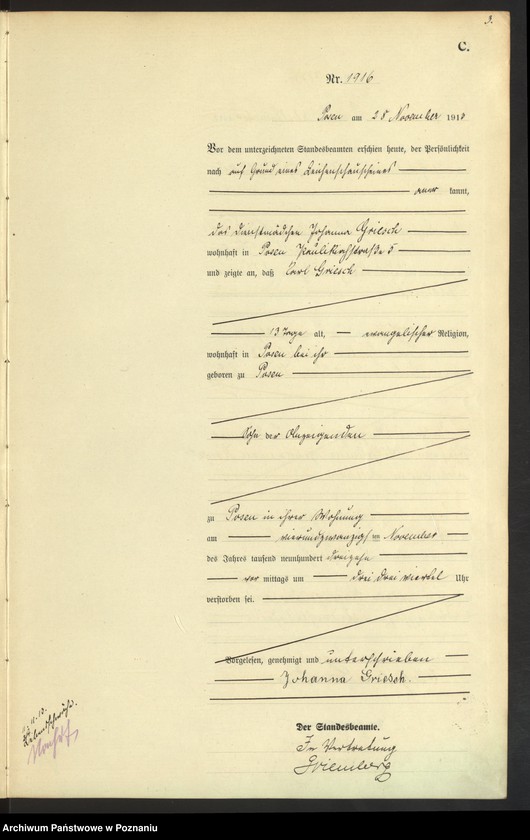 3.
C.
Nr. 1916
Posen am 25 November 1913
Vor dem unterzeichneten Standesbeamten erschien heute, der Persönlichkeit
nach auf Grund eines Leichenschauscheines
aner kannt,
das Dienstmädchen Johanna Griesch
wohnhaft in Posen Paulikirchstraße 5
und zeigte an, daß Karl Griesch
13 Tage alt, evangelischer Religion,
wohnhaft in Posen bei ihr
geboren zu Posen
Sohn der Anzeigenden
zu Posen in ihrer Wohnung
am vierundzwanzigsten November
des Jahres tausend neunhundert dreizehn
vor mittags um drei drei viertel Uhr
verstorben sei.
Vorgelesen, genehmigt und unterschrieben
Johanna Griesch.
Der Standesbeamte.
In Vertretung
Archiwum Państwowe w Poznaniu